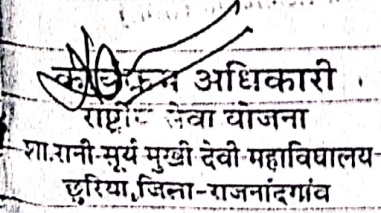 कार्यक्रम अधिकारी
राष्ट्रीय सेवा योजना
शा.रानी-सूर्य मुखी देवी-महाविद्यालय-
छुरिया, जिला-राजनांदगांव